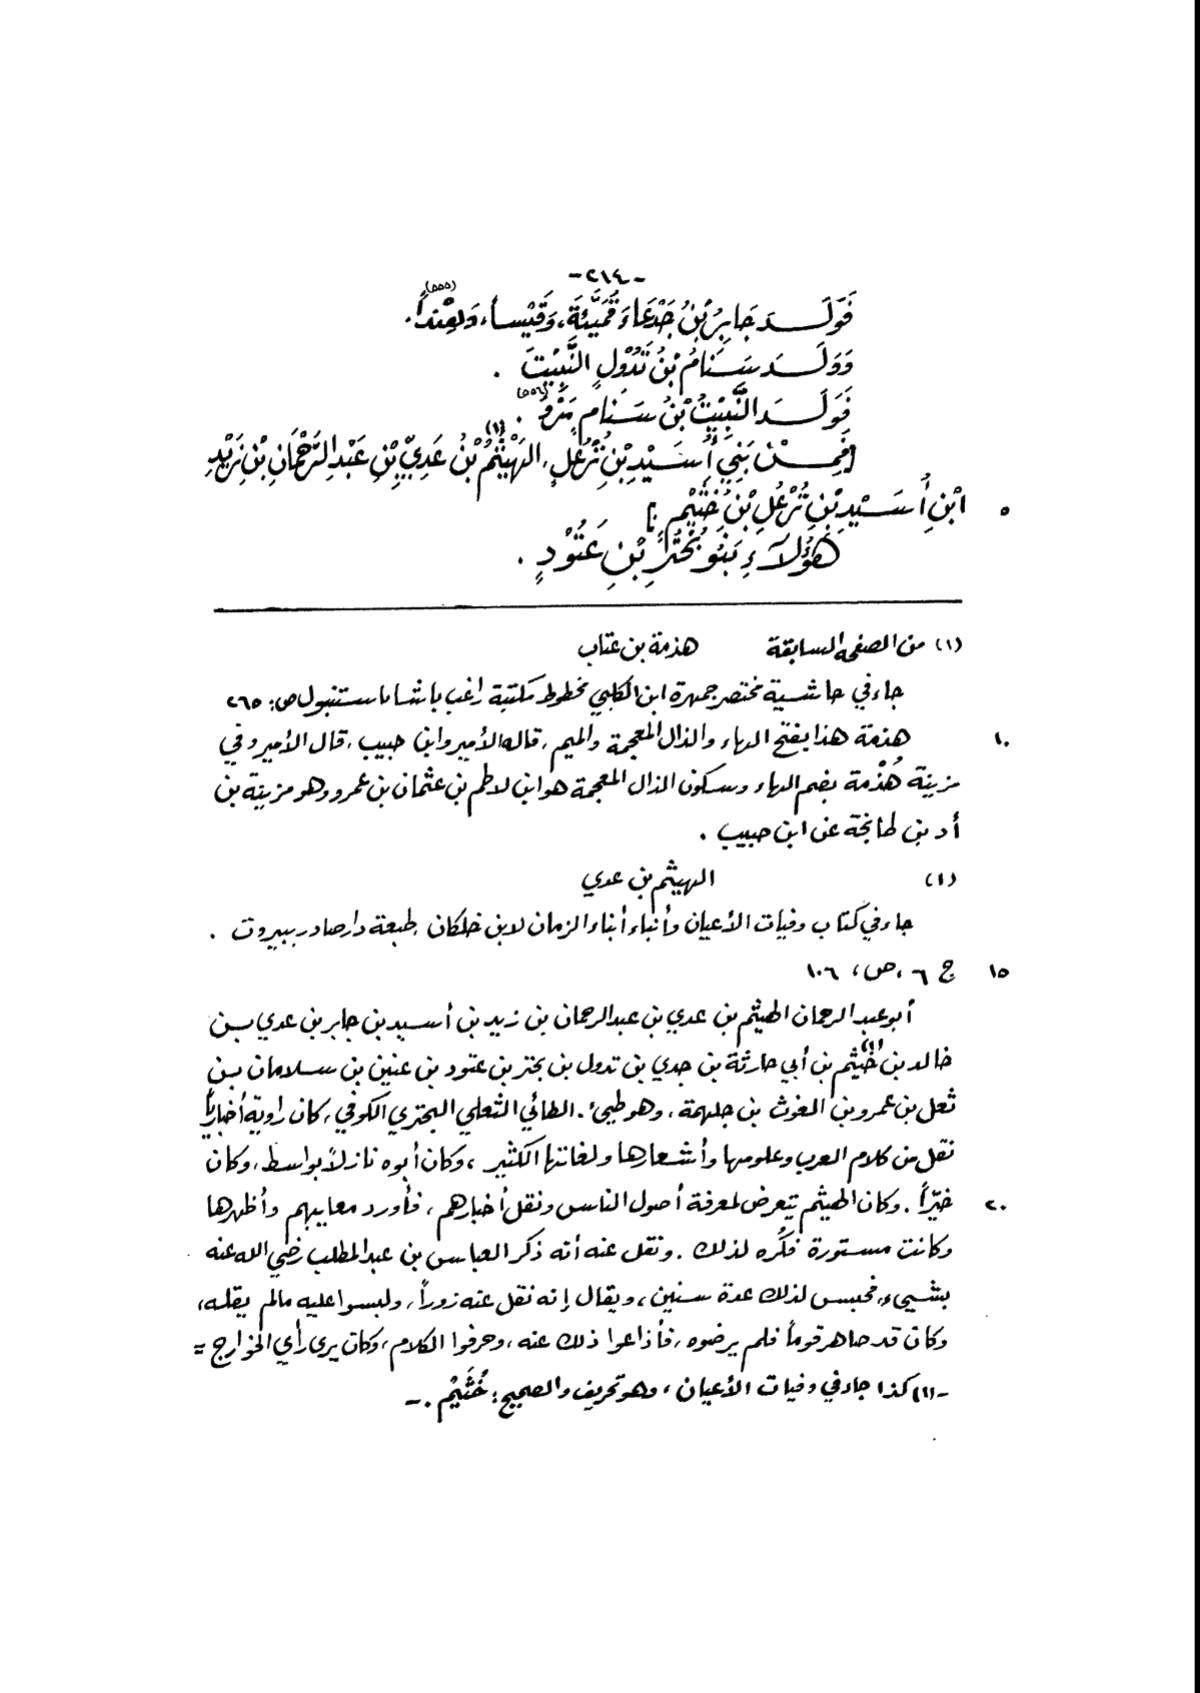 -٢١٤-
فَوَلَــدَ جَابِرُ بْنُ جَدْعَاءَ قُمَيْئَةَ، وَقَيْساً، وَهِنْداً(٥٥٥).
وَوَلَــدَ سَـنَامُ بْنُ تَدُوْلٍ النَّبِيْتَ .
فَوَلَــدَ النَّبِيْتُ بْنُ سَـنَامٍ (٥٥٦).
[فَمِــنْ بَنِي أُسَـيْدِ بْنِ تُرْعُلٍ، الهَيْثَمُ(١) بْنُ عَدِيِّ بْنِ عَبْدِ الرَّحْمَانِ بْنِ زَيْدِ
٥ ابْنِ أُسَـيْدِ بْنِ تُرْعُلِ بْنِ خُثَيْمٍ.]
هَؤُلَاءِ بَنُو بُحْتُرِ بْنِ عَتُوْدٍ .
(١) من الصفحة السابقة هذمة بن عتاب
جاء في حاشية مختصر جمهرة ابن الكلبي مخطوط مكتبة راغب باشا باستنبول ص: ٢٦٥
١٠ هذمة هذا بفتح الهاء والذال المعجمة والميم، قاله الأمير وابن حبيب، قال الأمير وفي
مزينة هُذْمة بضم الهاء وسكون الذال المعجمة هو ابن لاطم بن عثمان بن عمرو وهو مزينة بن
أد بن طابخة عن ابن حبيب .
(١) الهيثم بن عدي
جاء في كتاب وفيات الأعيان وأنباء أبناء الزمان لابن خلكان طبعة دار صادر ببيروت .
١٥ ج ٦، ص، ١٠٦
أبو عبد الرحمان الهيثم بن عدي بن عبد الرحمان بن زيد بن أسيد بن جابر بن عدي بـن
خالد بن خُثَيم(١) بن أبي حارثة بن جدي بن تدول بن بحتر بن عتود بن عنين بن سـلامان بـن
ثعل بن عمرو بن الغوث بن جلهمة، وهو طيئ. الطائي الثعلي البحتري الكوفي، كان راوية أخبارياً
نقل من كلام العرب وعلومها وأشعارها ولغاتها الكثير، وكان أبوه نازلاً بواسط، وكان
٢٠ خيّراً. وكان الهيثم يتعرض لمعرفة أصول الناس ونقل أخبارهم، فأورد معايبهم وأظهرها
وكانت مستورة فكُره لذلك. ونقل عنه أنه ذكر العباس بن عبد المطلب رضي الله عنه
بشييء، فحبس لذلك عدة سنين، ويقال إنه نقل عنه زوراً، ولبسوا عليه مالم يقله،
وكان قد صاهر قوماً فلم يرضوه، فأذاعوا ذلك عنه، وحرفوا الكلام، وكان يرى رأي الخوارج =
-(١) كذا جاء في وفيات الأعيان، وهو تحريف والصحيح: خُثَيْم .-